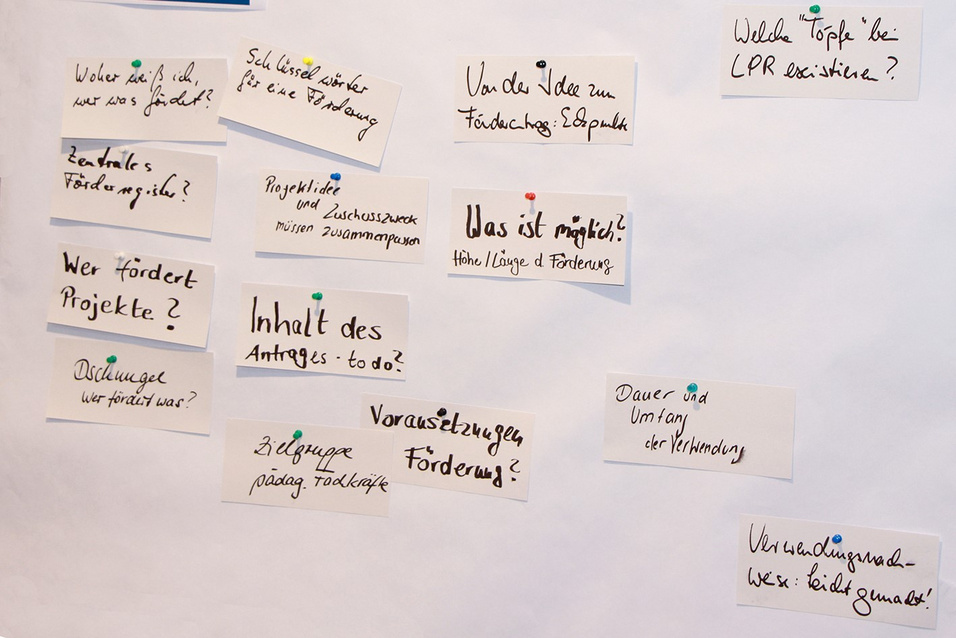 Woher weiß ich,
wer was fördert?
Zentrales
Förderregister?
Wer fördert
Projekte?
Dschungel
Wer fördert was?
Schlüsselwörter
für eine Förderung
Projektidee
und Zuschusszweck
müssen zusammenpassen
Inhalt des
Antrages - to do?
Zielgruppe
pädag. Fachkräfte
Voraussetzungen
Förderung?
Von der Idee zum
Förderantrag: Eckpunkte
Was ist möglich?
Höhe/Länge d Förderung
Dauer und
Umfang
der Verwendung
Welche "Töpfe" bei
LPR existieren?
Verwendungsnach-
weise: leicht gemacht!